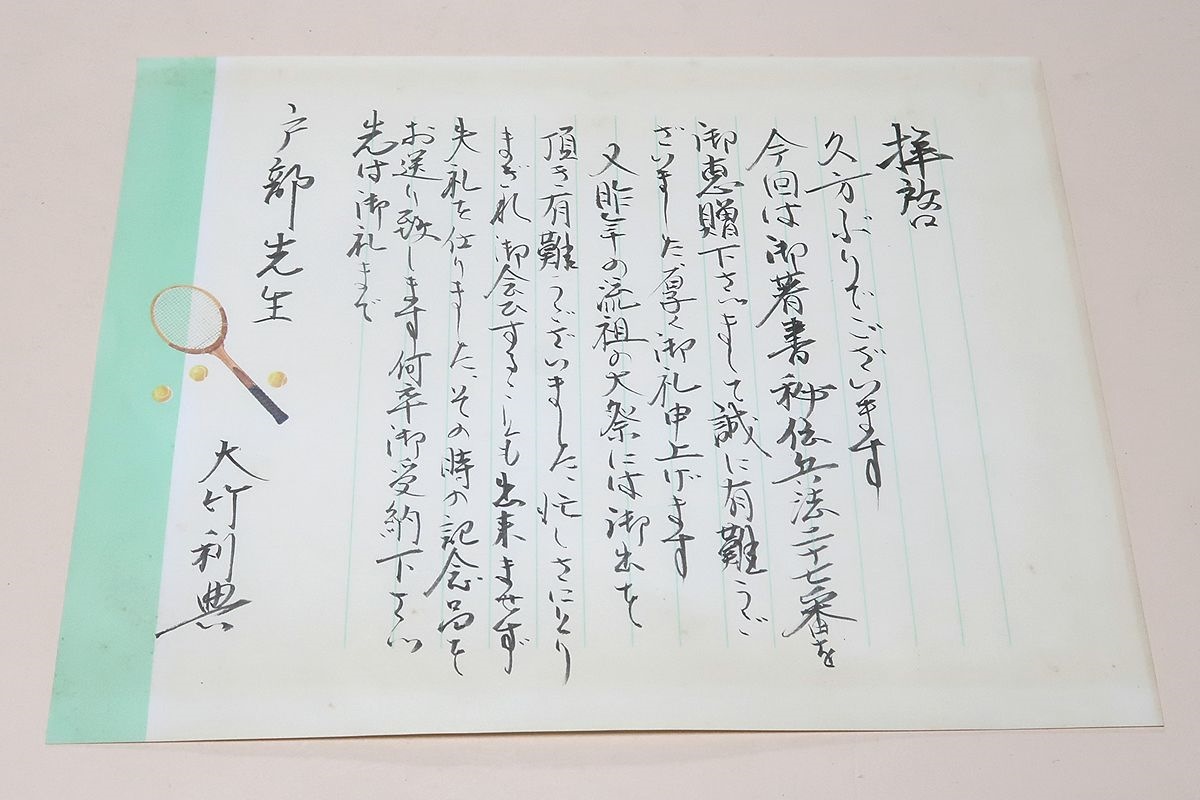 拝啓
久方ぶりでございます
今回は御著書秘伝兵法二十七番を
御恵贈下さいまして誠に有難うご
ざいました、厚く御礼申上げます
又昨年の流祖の大祭には御出を
頂き有難うございました、忙しさにとり
まぎれ御会ひすることも出来ませず
失礼を仕りました、その時の記念品を
お送り致します何卒御受納下さい
先は御礼まで
戸部先生
大竹利典